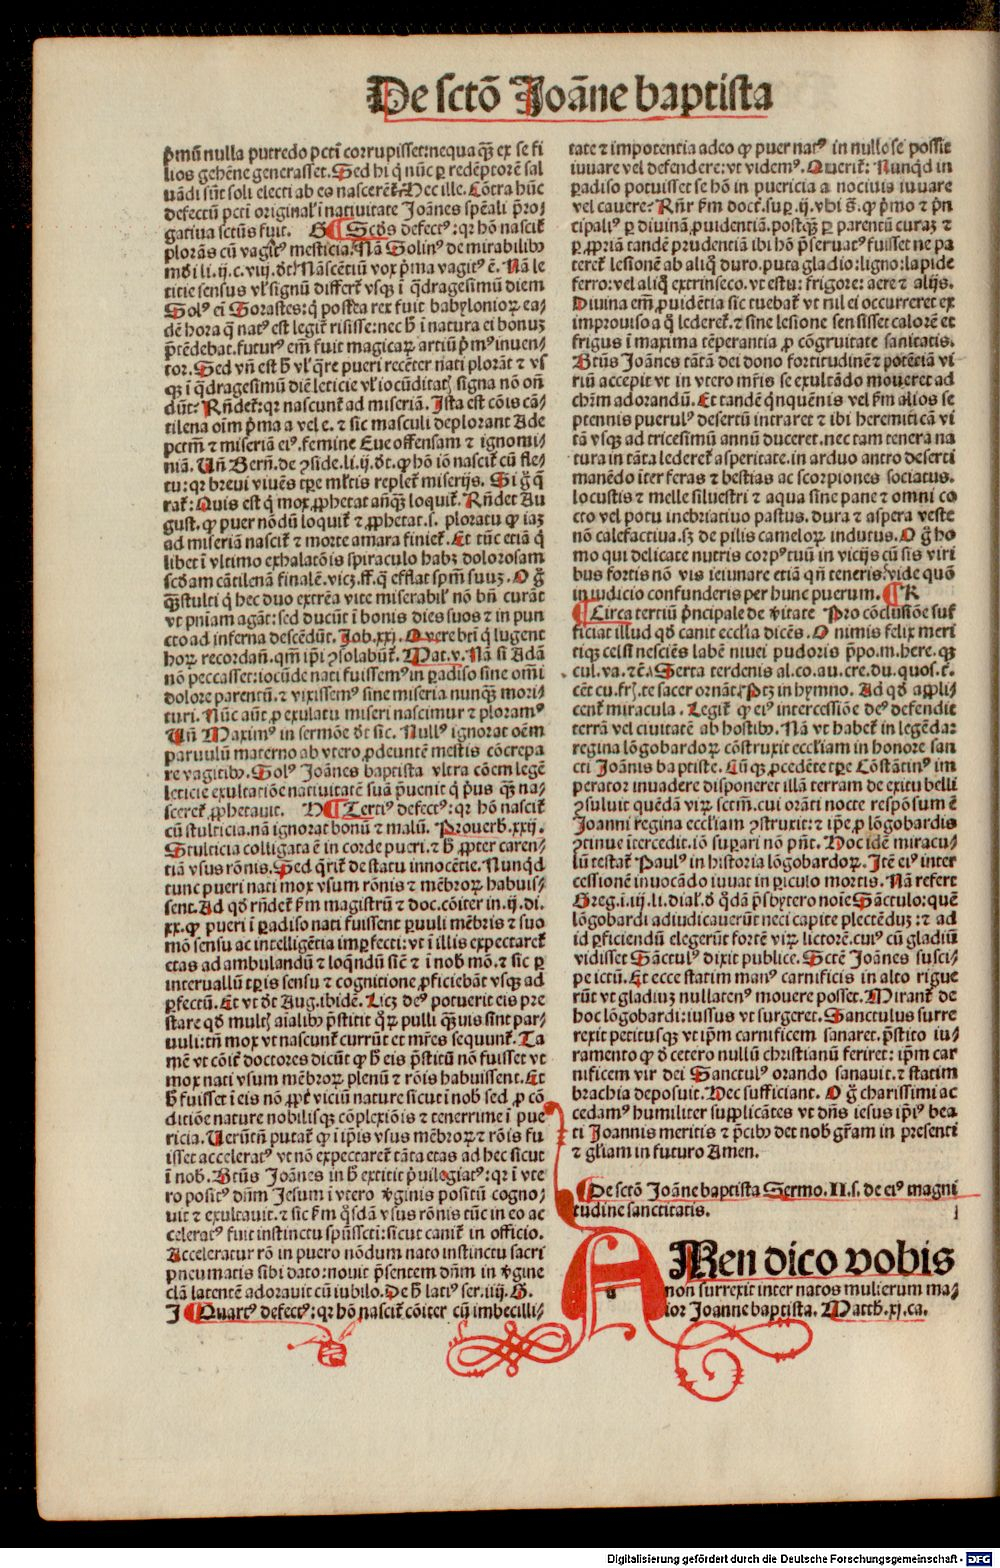 De sctō Joāne baptista
p̄mū nulla putredo pctī corrupisset: nequaq̄ꝫ ex se fi
lios gehēne generasset. Sed hi q̇ nūc ꝑ redēptorē sal
uādi sūt soli electi ab eo nascerēt̉. Hec ille. Cōtra hūc
defectū pctī originaľ i natiuitate Joānes spēali p̄ro⸗
gatiua sctūs fuit. G ¶ Scd̄s defectꝰ: qr hō nascit̉
plorās cū vagitꝰ mesticia. Nā Solinꝰ de mirabilibꝰ
mūdi li. ij. c. viij. dt̄. Nāscētiū vox p̄ma vagitꝰ ē. Nā le
titie sensus vľ signū differt̉ vsqꝫ i q̇dragesimū diem
Solꝰ ei Sorastes: q̇ postea rex fuit babylonioꝝ ea⸗
dē hora q̇ natꝰ est legit̉ risisse: nec h̄ i natura ei bonuꝫ
p̄tēdebat. futurꝰ em̄ fuit magicaꝝ artiū p̄mꝰ inuen⸗
tor. Sed vn̄ est h̄ vľ q̄re pueri recēter nati plorāt ⁊ vs
qꝫ i q̇dragesimū diē leticie vľ iocūditatꝭ signa nō on̄
dūt. Rn̄det̉: qr nascunt̉ ad miseriā. Ista est cōis cā⸗
tilena oīm p̄ma a vel e. ⁊ sic masculi deplorant Ade
pctm̄ ⁊ miseriā eiꝰ. femine Eue offensam ⁊ ignomi⸗
niā. Un̄ Bern̄. de ꝯside. li. ij. dt̄. ꝙ hō iō nascit̉ cū fle⸗
tu: qr breui viuēs tꝑe mľtis replet̉ miserijs. Si g̊ q̄
rat̉: Quis est q̇ mox ꝓphetat an̄qꝫ loquit̉. Rn̄det Au
gust. ꝙ puer nōdū loquit̉ ⁊ ꝓphetat. s. ploratu ꝙ iaꝫ
ad miseriā nascit̉ ⁊ morte amara finiet̉. Et tūc etiā q̇
libet i vltimo exhalatōis spiraculo habꝫ dolorosam
scd̄am cātilenā finalē. vicꝫ. ff. q̇ efflat spm̄ suuꝫ. O g̊
q̄ꝫstulti q̇ hec duo extrēa vite miserabiľ nō bn̄ curāt
vt pn̄iam agāt: sed ducūt i bonis dies suos ⁊ in pun
cto ad inferna descēdūt. Job. xxj. Quere bt̄i q̇ lugent
hoꝝ recordan̄. qm̄ ip̄i ꝯsolabūt̉. Mat. v. Nā si Adā
nō peccasset: iocūde nati fuissemꝰ in ꝑadiso sine om̄i
dolore parentū. ⁊ vixissemꝰ sine miseria nunqꝫ mori⸗
turi. Nūc aūt ꝓ exulatu miseri nascimur ⁊ ploramꝰ
Un̄ Maximꝰ in sermōe dt̄ sic. Nullꝰ ignorat oēm
paruulū materno ab vtero ꝓdeuntē mestis cōcrepa
re vagitibꝰ. Solꝰ Joānes baptista vltra cōem legē
leticie exultatiōe natiuitatē suā p̄uenit q̇ p̄us qꝫ na⸗
sceret̉ ꝓphetauit. H ¶ Tertiꝰ defectꝰ: qr hō nascit̉
cū stulticia. nā ignorat bonū ⁊ malū. Prouerb. xxij.
Stulticia colligata ē in corde pueri. ⁊ h̄ ꝓpter caren⸗
tiā vsus rōnis. Sed q̄rit̉ de statu innocētie. Nunqd
tunc pueri nati mox vsum rōnis ⁊ mēbroꝝ habuis⸗
sent. Ad qd̄ rn̄det̉ ẜm magistrū ⁊ doc. cōiter in. ij. di.
xx. ꝙ pueri i ꝑadiso nati fuissent ꝑuuli mēbris ⁊ suo
mō sensu ac intelligētia imꝑfecti: vt i illis expectaret̉
etas ad ambulandū ⁊ loq̄ndū siē ⁊ i nob mō. ⁊ sic ꝑ
interuallū tꝑis sensu ⁊ cognitione ꝓficiebāt vsqꝫ ad
ꝑfectū. Et vt dt̄ Aug. ibidē. Licꝫ deꝰ potuerit eis pre
stare qd̄ multꝭ aīalibꝰ p̄stitit q̊ꝝ pulli q̄ꝫuis sint par⸗
uuli: tn̄ mox vt nascunt̉ currūt et mr̄es sequunt̉. Ta
mē vt cōit̉ doctores dicūt ꝙ h̄ eis p̄stitū nō fuisset vt
mox nati vsum mēbroꝝ plenū ⁊ rōis habuissent. Et
h̄ fuisset i eis nō ꝓpt̉ viciū nature sicut i nob sed ꝓ cō
ditiōe nature nobilisqꝫ cōplexiōis ⁊ tenerrime i pue
ricia. Uerūtn̄ putat̉ ꝙ i ip̄is vsus mēbroꝝ ⁊ rōis fu
isset acceleratꝰ vt nō expectaret̉ tāta etas ad hec sicut
i nob. Btūs Joānes in h̄ extitit p̄uilegiatꝰ: qr i vte
ro positꝰ dn̄m Jesum i vtero v̄ginis positū cogno⸗
uit ⁊ exultauit. ⁊ sic ẜm q̇sdā vsus rōnis tūc in eo ac
celeratꝰ fuit instinctu spūssctī: sicut canit̉ in officio.
Acceleratur rō in puero nōdum nato instinctu sacri
pneumatis sibi dato: nouit p̄sentem dn̄m in v̄gine
clā latentē adorauit cū iubilo. De h̄ latiꝰ ser. iiij. G.
I ¶ Quartꝰ defectꝰ: qr hō nascit̉ cōiter cū imbecilli⸗
tate ⁊ impotentia adeo ꝙ puer natꝰ in nullo se possit
iuuare vel defendere: vt videmꝰ. Querit̉: Nunqd in
ꝑadiso potuisset se hō in puericia a nociuis iuuare
vel cauere. Rn̄r ẜm doct. sup. ij. vbi s̄. ꝙ p̄mo ⁊ p̄n
cipaliꝰ ꝑ diuinā ꝓuidentiā. postq̄ꝫ ꝑ parentū curaꝫ ⁊
ꝑ ꝓpriā tandē prudentiā ibi hō p̄seruatꝰ fuisset ne pa
teret̉ lesionē ab aliq̊ duro. puta gladio: ligno: lapide
ferro: vel aliq̊ extrinseco. vt estu: frigore: aere ⁊ alijs.
Diuina em̄ ꝓuidētia sic tuebat̉ vt nil ei occurreret ex
improuiso a q̊ lederet̉. ⁊ sine lesione sensisset calorē et
frigus i maxima tēperantia ꝓ cōgruitate sanitatis.
Btūs Joānes tātā dei dono fortitudinē ⁊ potētiā vi
riū accepit vt in vtero mr̄is se exultādo moueret ad
chm̄ adorandū. Et tandē q̇nquēnis vel ẜm alios se
ptennis puerulꝰ desertū intraret ⁊ ibi heremiticā vi
tā vsqꝫ ad tricesimū annū duceret. nec tam tenera na
tura in tāta lederet̉ asperitate. in arduo antro deserti
manēdo iter feras ⁊ bestias ac scorpiones sociatus.
locustis ⁊ melle siluestri ⁊ aqua sine pane ⁊ omni co
cto vel potu inebriatiuo pastus. dura ⁊ aspera veste
nō calefactiua. sꝫ de pilis cameloꝝ indutus. O g̊ ho
mo qui delicate nutris corpꝰ tuū in vicijs cū sis viri
bus fortis nō vis ieiunare etiā qn̄ teneris. vide quō
in iudicio confunderis per hunc puerum. ¶ K
¶ Circa tertiū p̄ncipale de v̄itate Pro cōclusiōe suf
ficiat illud qd̄ canit ecclīa dicēs. O nimis felix meri
tiqꝫ celsi nesciēs labē niuei pudoris p̄po. m. here. qꝫ
cul. va. ⁊c̄. Serta terdenis al. co. au. cre. du. quos. t̉.
cēt cu. frꝭ. te sacer ornāt. Ptꝫ in hymno. Ad qd̄ appli⸗
cent̉ miracula. Legit̉ ꝙ eiꝰ intercessiōe deꝰ defendit
terrā vel ciuitatē ab hostibꝰ. Nā vt habet̉ in legēdaꝫ
regina lōgobardoꝝ cōstruxit eccľiam in honore san
cti Joānis baptiste. Cū qꝫ ꝓcedēte tꝑe Cōstātinꝰ im
perator inuadere disponeret illā terram de exitu belli
ꝯsuluit quēdā viꝝ sctm̄. cui orāti nocte respōsum ē
Joanni regina eccľiam ꝯstruxit: ⁊ ip̄e ꝓ lōgobardis
ꝯtinue itercedit. iō suꝑari nō pn̄t. Hoc idē miracu⸗
lū testat̉ Paulꝰ in historia lōgobardoꝝ. Itē eiꝰ inter
cessionē inuocādo iuuat in ꝑiculo mortis. Nā refert
Greg. i. iij. li. diaľ. d̊ q̇dā p̄sbytero noīe Sāctulo: quē
lōgobardi adiudicauerūt neci capite plectēduꝫ: ⁊ ad
id ꝑficiendū elegerūt fortē viꝝ lictorē. cuiꝰ cū gladiū
vidisset Sāctulꝰ dixit publice. Sctē Joānes susci⸗
pe ictū. Et ecce statim manꝰ carnificis in alto rigue
rūt vt gladiuꝫ nullatenꝰ mouere posset. Mirant̉ de
hoc lōgobardi: iussus vt surgeret. Sanctulus surre
rexit petitusqꝫ vt ip̄m carnificem sanaret. p̄stito iu⸗
ramento ꝙ d̊ cetero nullū christianū feriret: ip̄m car
nificem vir dei Sanctulꝰ orando sanauit. ⁊ statim
brachia deposuit. Hec sufficiant. O g̊ charissimi ac
cedamꝰ humiliter supplicātes vt dn̄s iesus ip̄iꝰ bea
ti Joannis meritis ⁊ p̄cibꝰ det nob gr̄am in presenti
⁊ gľiam in futuro Amen.
¶ De sctō Joāne baptista Sermo. II. s. de eiꝰ magni
tudine sanctitatis.
AMen dico vobis
non surrexit inter natos mulierum ma⸗
ior Joanne baptista. Matth. xj. ca.
Digitalisierung gefördert durch die Deutsche Forschungsgemeinschaft - DFG